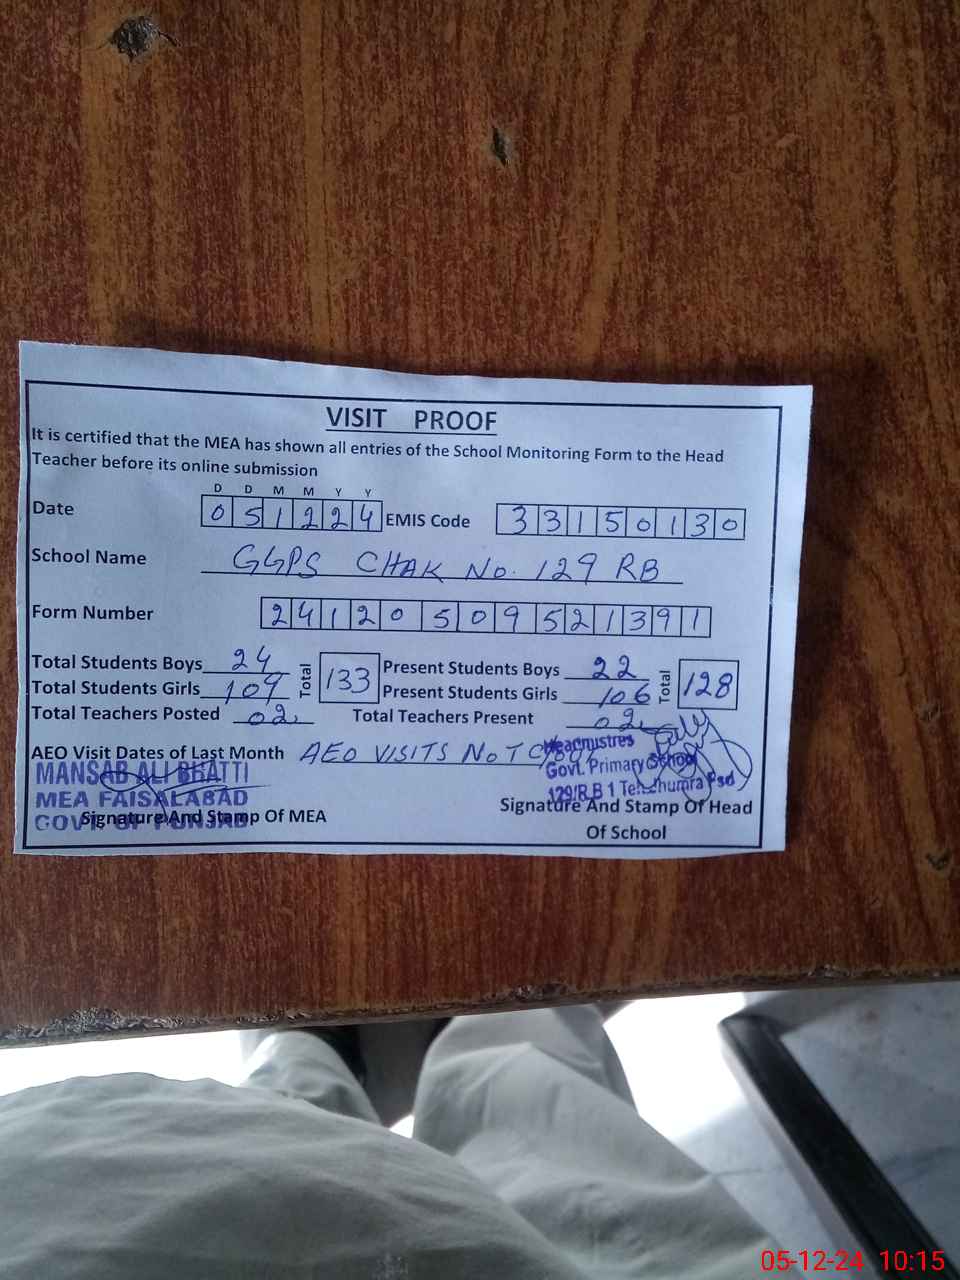 VISIT PROOF
It is certified that the MEA has shown all entries of the School Monitoring Form to the Head
Teacher before its online submission
D D M M Y Y
Date 051224 EMIS Code 33150130
School Name GGPS CHAK No. 129 RB
Form Number 24120509521391
Total Students Boys 24 Total 133 Present Students Boys 22 Total 128
Total Students Girls 109 Present Students Girls 106
Total Teachers Posted 02 Total Teachers Present 02
AEO Visit Dates of Last Month AEO VISITS NOT
MANSAB ALI BHATTI
MEA FAISALABAD
GOVT OF PUNJAB
Signature And Stamp Of MEA
Headmistres
Govt. Primary School
129/R.B 1 Teh Jhumra Fsd
Signature And Stamp Of Head
Of School
05-12-24 10:15